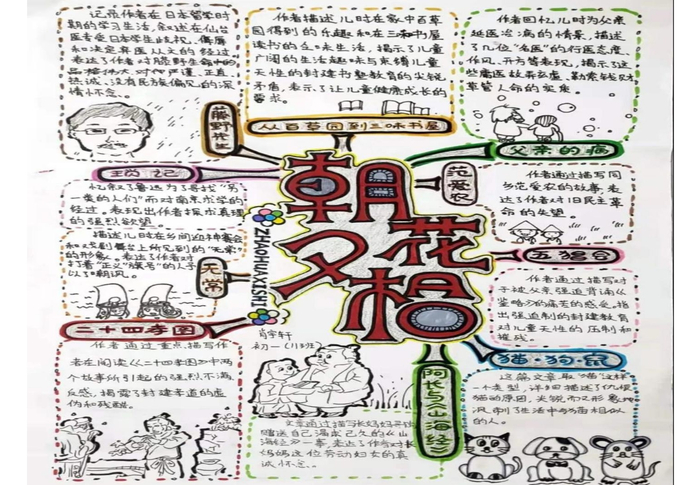 记录作者在日本留学时
期的学习生活,叙述在仙台
医专受日本学生歧视、侮辱
和决定弃医从文的经过。
表达了作者对藤野先生的
品格
热诚、没有民族偏见的深
情怀念。
藤野先生
作者描述儿时在家中百草
园得到的乐趣和在三味书屋
读书的乏味生活,揭示了儿童
广阔的生活趣味与束缚儿童
天性的封建书塾教育的尖锐
矛盾,表示了让儿童健康成长的
要求。
从百草园到三味书屋
作者回忆儿时为父亲
延医治病的情景,描述
了几位“名医”的行医态度、
作风、开方等表现,揭示了这
些庸医故弄玄虚、勒索钱财
草菅人命的实质。
父亲的病
琐记
忆叙了鲁迅为了寻找“另
一类的人们”而对南京求学的
经过。表现出作者探求真理
的强烈欲望。
朝花夕拾
ZHAOHUAXISHI
范爱农
作者通过描写同
乡范爱农的故事,表
达了作者对旧民主革
命的失望。
描述儿时在乡间迎神赛会
和戏剧舞台上所见到的“无常”
的形象。表达了作者对
打着“正义”旗号”的人予
以了嘲讽。
无常
五猖会
作者通过描写对
于被父亲强迫背诵《
鉴略》的痛苦的感会,指
出强迫制的封建教育
对儿童天性的压制和
摧残。
二十四孝图
作者通过重点描写作
者在阅读《二十四孝图》中两
个故事所引起的强烈不满
反感,揭露了封建孝道的虚
伪和残酷。
初一(1)班
文章通过描写长妈妈
赠送自己渴求已久的《山
海经》一事,表达了作者对长
妈妈这位劳动妇女的真
诚怀念。
阿长与《山海经》
猫·狗·鼠
这篇文章取“猫”这样
一个类型,详细描述了仇恨
猫的原因,尖锐而又形象地
讽刺了生活中与猫相似
的人。